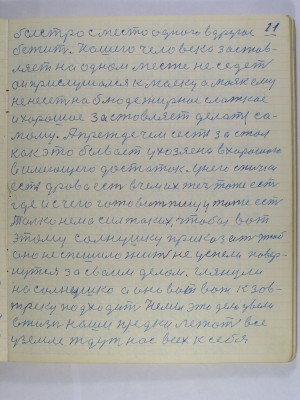 21
быстро с место одного в другое
бежит. Нашего человека застов-
ляет на одном месте не седет
он прислушался к маяку а маяк ему
не несет на блюде жирное сладкое
и хорошое застовляет делать са-
мому. А прежде чем сесть за стол
как это бывает у хозяено в хорошого
в имеющего достаток. у него спички
есть дрова есть в чем их жеч тоже есть
где и с чего готовит пищу тоже есть
Только нема сил таких чтобы вот
этому солнушку приказать чтоб
оно не спешило жить не успели повер-
нутся за своим делом, глянули
на солнушко а оно вот вот к зов-
трику подходить Немил это дело
в жизни наши предки лежат все
у земле ждут нас всех к себе